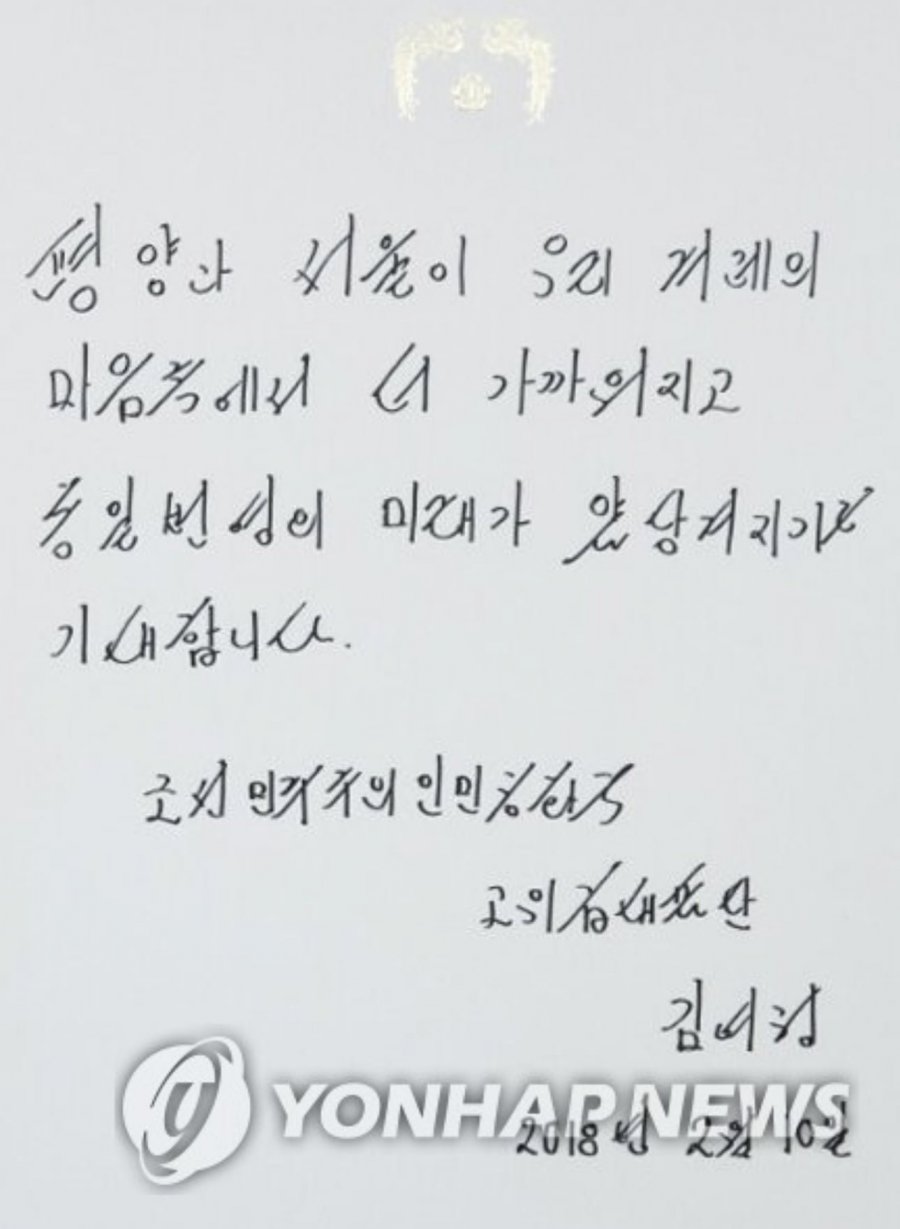 평양과 서울이 우리 겨레의
마음속에서 더 가까워지고
통일번영의 미래가 앞당겨지기를
기대합니다.
조선민주주의인민공화국
고위급대표단
김여정
YONHAP NEWS
2018년 2월 10일